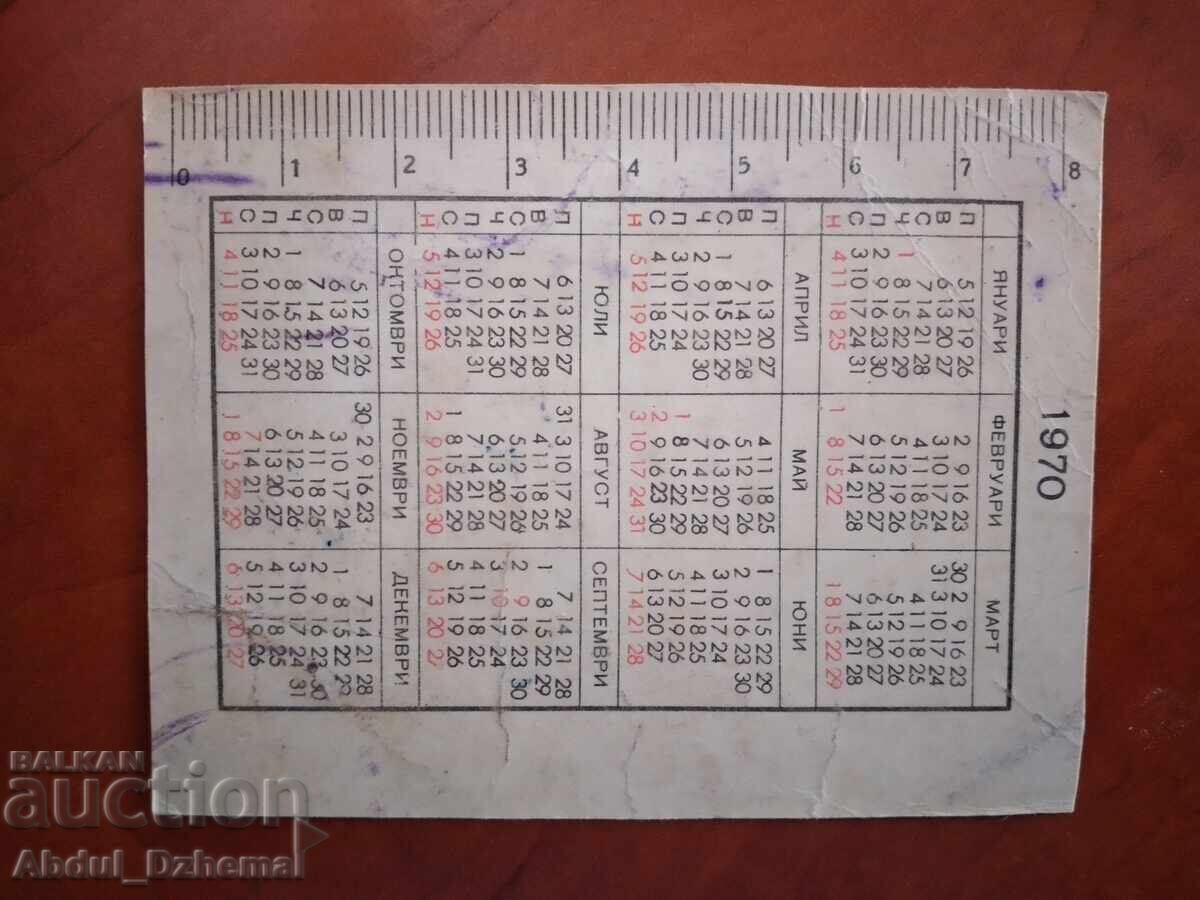 0 1 2 3 4 5 6 7 8
1970
ЯНУАРИ ФЕВРУАРИ МАРТ
П 5 12 19 26 2 9 16 23 30 2 9 16 23
В 6 13 20 27 3 10 17 24 31 3 10 17 24
С 7 14 21 28 4 11 18 25 4 11 18 25
Ч 1 8 15 22 29 5 12 19 26 5 12 19 26
П 2 9 16 23 30 6 13 20 27 6 13 20 27
С 3 10 17 24 31 7 14 21 28 7 14 21 28
Н 4 11 18 25 1 8 15 22 1 8 15 22 29
АПРИЛ МАЙ ЮНИ
П 6 13 20 27 4 11 18 25 1 8 15 22 29
В 7 14 21 28 5 12 19 26 2 9 16 23 30
С 1 8 15 22 29 6 13 20 27 3 10 17 24
Ч 2 9 16 23 30 7 14 21 28 4 11 18 25
П 3 10 17 24 1 8 15 22 29 5 12 19 26
С 4 11 18 25 2 9 16 23 30 6 13 20 27
Н 5 12 19 26 3 10 17 24 31 7 14 21 28
ЮЛИ АВГУСТ СЕПТЕМВРИ
П 6 13 20 27 31 3 10 17 24 7 14 21 28
В 7 14 21 28 4 11 18 25 1 8 15 22 29
С 1 8 15 22 29 5 12 19 26 2 9 16 23 30
Ч 2 9 16 23 30 6 13 20 27 3 10 17 24
П 3 10 17 24 31 7 14 21 28 4 11 18 25
С 4 11 18 25 1 8 15 22 29 5 12 19 26
Н 5 12 19 26 2 9 16 23 30 6 13 20 27
ОКТОМВРИ НОЕМВРИ ДЕКЕМВРИ
П 5 12 19 26 30 2 9 16 23 7 14 21 28
В 6 13 20 27 3 10 17 24 1 8 15 22 29
С 7 14 21 28 4 11 18 25 2 9 16 23 30
Ч 1 8 15 22 29 5 12 19 26 3 10 17 24 31
П 2 9 16 23 30 6 13 20 27 4 11 18 25
С 3 10 17 24 31 7 14 21 28 5 12 19 26
Н 4 11 18 25 1 8 15 22 29 6 13 20 27
BALKAN
auction
Abdul_Dzhemal